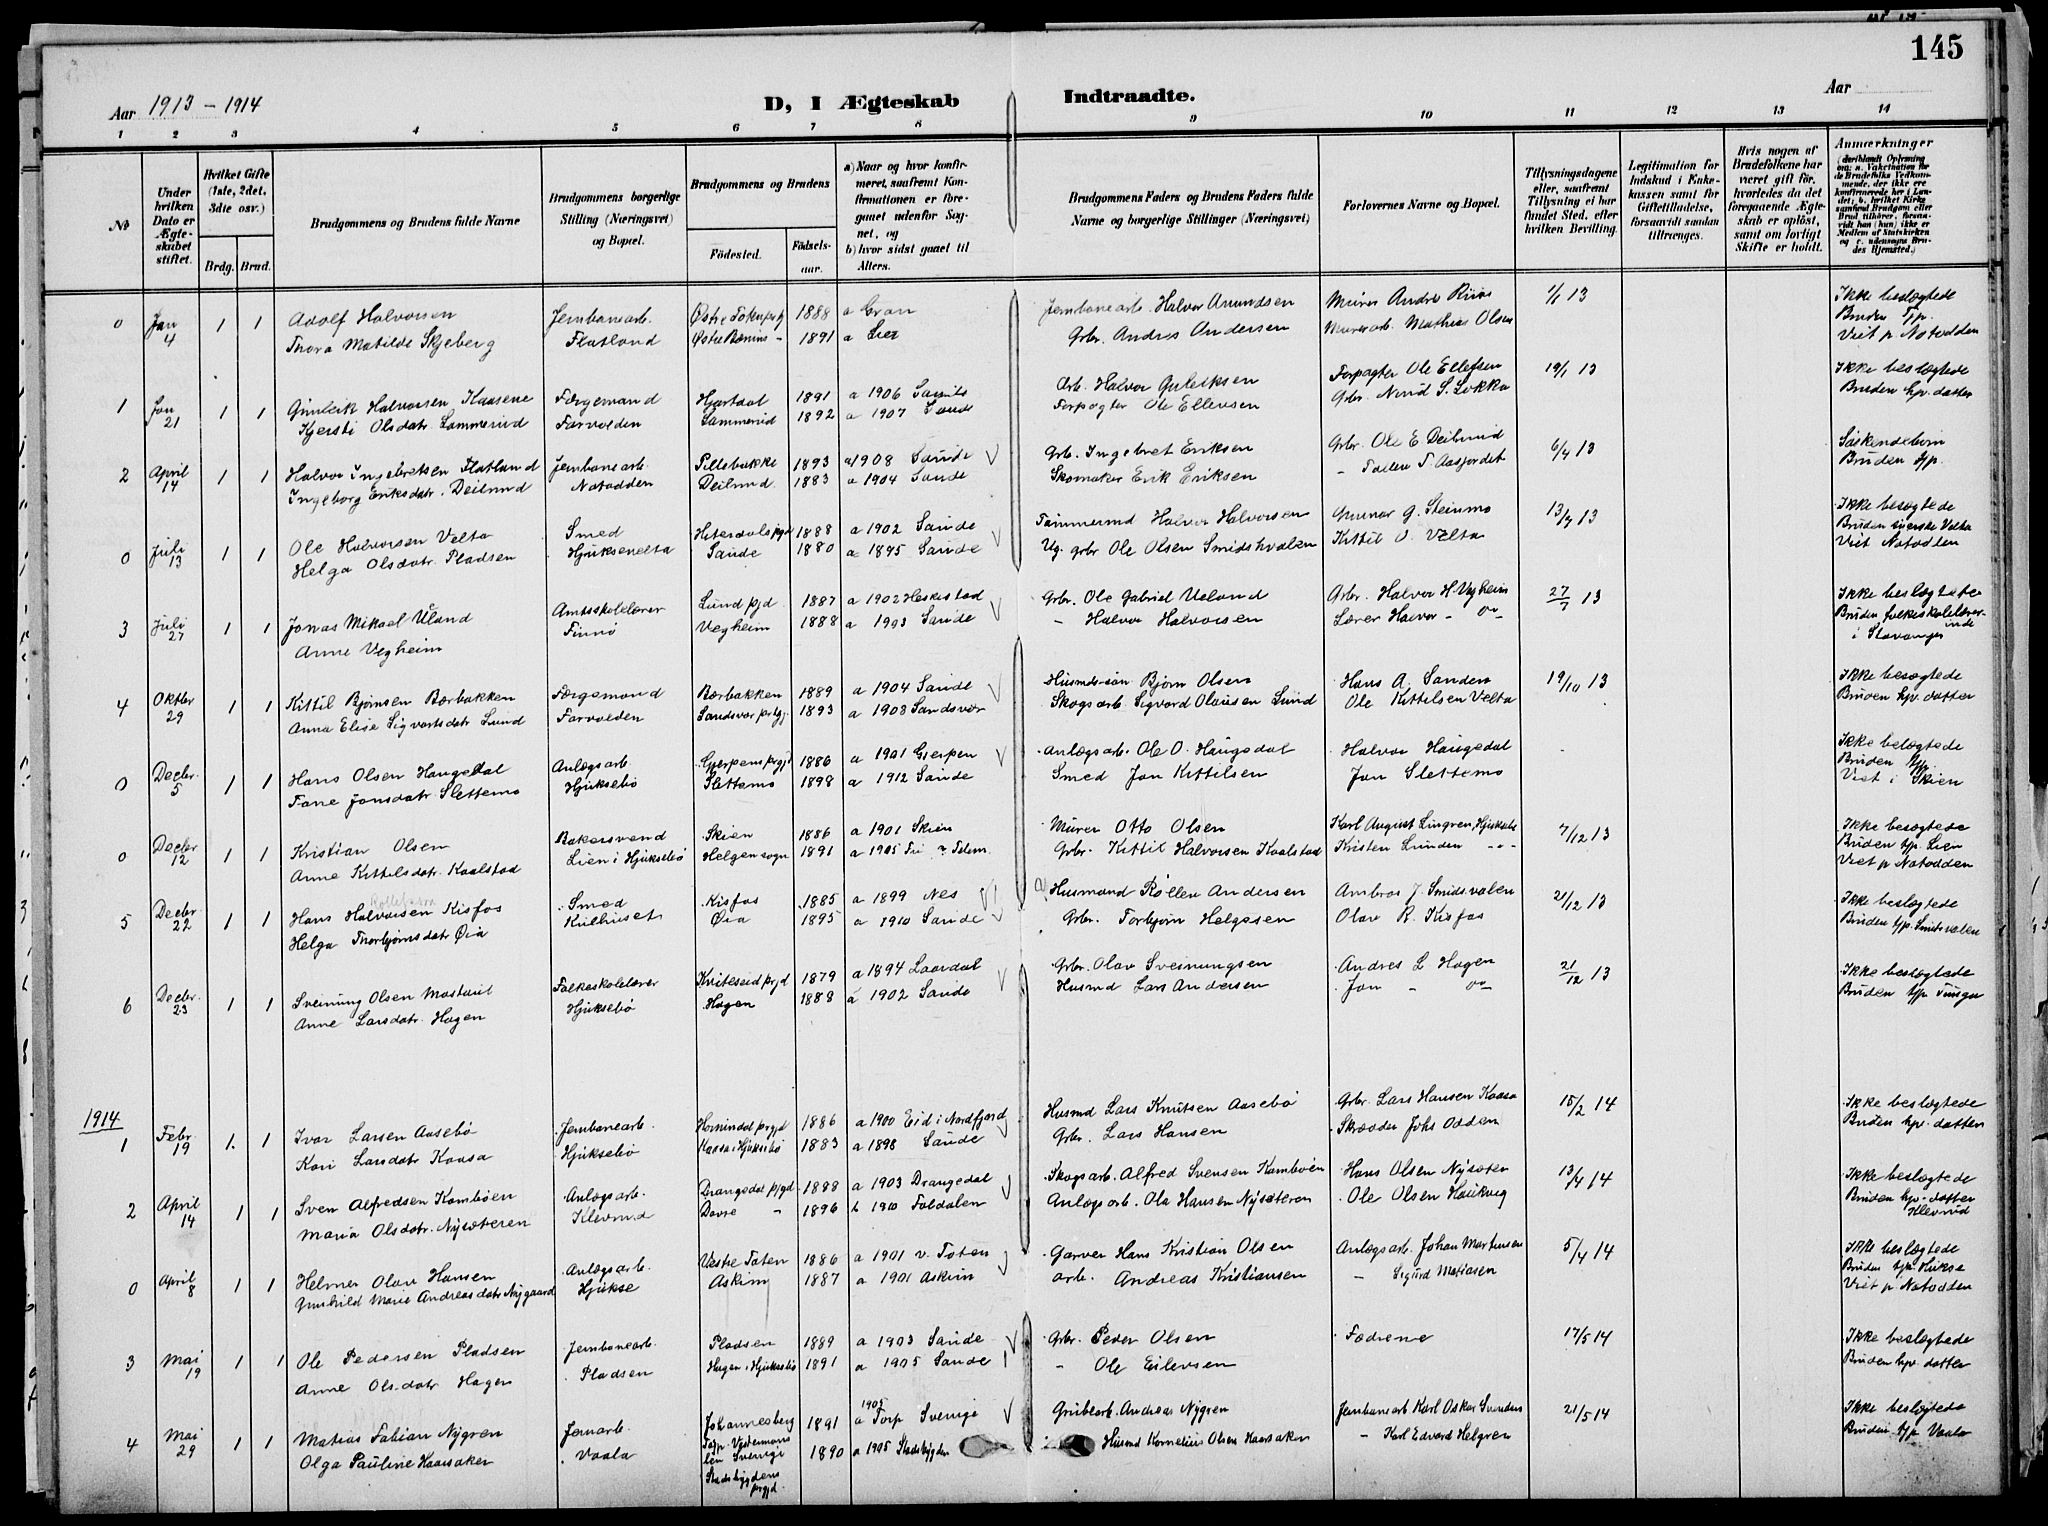 145
Aar 1913 – 1914
D, I Ægteskab Indtraadte.
Aar
1 2 3 4 5 6 7 8 9 10 11 12 13 14
No
Under hvilken Dato er Ægteskabet stiftet.
Hvilket Gifte (1ste, 2det, 3die osv.)
Brdg. Brud.
Brudgommens og Brudens fulde Navne
Brudgommens borgerlige Stilling (Næringsvei) og Bopæl.
Brudgommens og Brudens
Födested. Födsels-aar.
a) Naar og hvor konfirmeret, saafremt Konfirmationen er foregaaet udenfor Sognet, og
b) hvor sidst gaaet til Alters.
Brudgommens Faders og Brudens Faders fulde Navne og borgerlige Stillinger (Næringsvei)
Forlovernes Navne og Bopæl.
Tillysningsdagene eller, saafremt Tillysning ei har fundet Sted, efter hvilken Bevilling.
Legitimation for Indskud i Enkekassen samt for Giftetilladelse, forsaavidt saadan tiltrænges.
Hvis nogen af Brudefolkene har været gift för, hvorledes da det foregaaende Ægteskab er oplöst, samt om lovligt Skifte er holdt.
Anmærkninger
0 Jan 4 1 1 Adolf Halvorsen Jernbanearb. 1888 a Gran Jernbanearb. Halvor Amundsen Murer Andre Riise 1/1 13 Ikke beslægtede
Thora Matilde Skjeberg Flatland 1891 a Lier Grbr. Andres Andersen Murerarb. Mathias Olsen Bruden Tjp.
Viet p Notodden
1 Jan 21 1 1 Gunleik Halvorsen Kaasene Færgemand Hjartdal 1891 a 1906 Arb. Halvor Gunleiksen Forpagter Ole Ellefsen 19/1 13 Ikke beslægtede
Kjersti Olsdatr. Lammerud Farvolden Lammerud 1892 a 1907 Sande Forpagter Ole Ellevsen Grbr. Bruden hjv. datter
2 April 14 1 1 Halvor Ingebretsen Flatland Jernbanearb. Tillebakke 1893 a 1908 Saude Grbr. Ingebret Eriksen Grbr. Ole E Deilrud 6/4 13 Söskendebörn
Ingeborg Eriksdatr. Deilrud Notodden Deilrud 1883 a 1904 Saude Skomaker Erik Eriksen Bruden tjp.
0 Juli 13 1 1 Ole Halvorsen Velta Smed Hiterdals prgd 1888 a 1902 Saude Tömmermd Halvor Halvorsen Gunnar G. Steinmo 13/7 13 Ikke beslægtede
Helga Olsdatr. Pladsen Hjuksevelta Saude 1880 a 1895 Saude Ug. grbr Ole Olsen Smidshvalen Kittil O. Velta
Viet Notodden
3 Juli 27 1 1 Jonas Mikael Uland Amtsskolelærer Lund prgd 1887 a 1902 Heskestad Grbr. Ole Gabriel Ueland Grbr. Halvor H. Vegheim 27/7 13 Ikke beslægtede
Anne Vegheim Finnö Vegheim 1888 a 1903 Saude – Halvor Halvorsen Lærer Halvor – " – Bruden folkeskolelærerinde
i Stavanger
4 Oktber 29 1 1 Kittil Bjørnsen Bærbakken Færgemand Bærbakken 1889 a 1904 Saude Husmdssön Bjørn Olsen Hans A. Sanden 19/10 13 Ikke beslægtede
Anna Elise Sigvartsdatr Lund Farvolden Sandsvær prgj. 1893 a 1908 Sandsvær Skogsarb. Sigvard Olausen Lund Ole Kittelsen Velta Bruden hjv. datter
0 Decbr. 5 1 1 Hans Olsen Haugedal Anlægsarb. Gjerpens prgjd 1886 a 1901 Gjerpen Anlægsarb. Ole O. Haugedal Halvor Haugedal Ikke belægtede
Tone Jonsdatr. Slettemo Hjuksebö Slettemo 1898 a 1912 Saude Smed Jon Kittilsen Jon Slettemo Bruden tjp.
Viet i Skien
0 Decbr 12 1 1 Kristian Olsen Bakersvend Skien 1886 a 1901 Skien Murer Otto Olsen Karl August Lingren, Hjuksebö 7/12 13 Ikke beslægtede
Anne Kittelsdatr. Kaalstad Lien i Hjuksebö Helgen sogn 1891 a 1905 Grbr. Kittil Halvorsen Kaalstad Kristen Lunden – " – Bruden tjp. Lien
Viet p Notodden
5 Decbr 22 1 1 Hans Halvorsen Kisfos Smed Kisfos 1885 a 1899 Nes Husmand Röllev Andersen Ambros J. Smidsvalen 21/12 13 Ikke beslægtede
Helga Thorbjörnsdatr Öia Kulhuset Öia 1895 a 1910 Saude Grbr. Torbjørn Helgesen Olav R. Kisfos Bruden tjp. Smidsvalen
6 Decbr. 23 1 1 Sveinung Olsen Folkeskolelærer Kviteseid prgjd 1879 a 1894 Laardal Grbr. Olav Sveinungsen Andres L Hagen 21/12 13 Ikke beslægtede
Anne Larsdatr. Hagen Hjuksebö Hagen 1888 a 1902 Saude Husmd Lars Andersen Jon – " – Bruden tjp
1914
1 Febr 19 1. 1 Ivar Larsen Aasebö Jernbanearb. Hornindal prgjd 1886 a 1900 Eid i Nordfjord Husmd Lars Knutsen Aasebö Grbr. Lars Hansen Kaasa 15/2 14 Ikke beslægtede
Kari Larsdatr Kaasa Hjuksebö Kaasa i Hjuksebö 1883 a 1898 Saude Grbr. Lars Hansen Skrædder Johs Odden Bruden hjv. datter
2 April 14 1 1 Sven Alfredsen Kamböen Anlægsarb. Drangedal prjgd 1888 a 1903 Drangedal Skogsarb. Alfred Svensen Kamböen Hans Olsen Nysæter 13/4 14 Ikke beslægtede
Maria Olsdatr. Nysæteren Klevrud Dovre " 1896 b 1910 Foldalen Anlægsarb. Ola Hansen Nysæteren Ole Olsen Haukvig Bruden hjv. datter
Klevrud
0 April 8 1 1 Helmer Olav Hansen Anlægsarb. Vestre Toten 1886 a 1901 v. Toten Garver Hans Kristian Olsen Anlægsarb. Johan Martinsen 5/4 14 Ikke beslægtede
Gunhild Marie Andreasdatr Nygaard Hjukse Askim 1887 a 1901 Askim Arb. Andreas Kristiansen – Sigurd Matiasen Bruden tjp. Hukse
Viet p Notodden
3 Mai 19 1 1 Ole Pedersen Pladsen Jernbanearb. Pladsen 1889 a 1903 Saude Grbr. Peder Olsen Fædrene 17/5 14 Ikke beslægtede
Anne Olsdatr Hagen Pladsen Hagen i Hjuksebö 1891 a 1905 Saude – Ole Eilevsen Bruden hjv. datter
4 Mai 29 1 1 Matias Fabian Nygren Jernarb. Johannesberg 1891 a 1905 Torp Sverige Grubearb. Andreas Nygren Jernbanearb Karl Oskar 21/5 14 Ikke beslægtede
Olga Pauline Haarsaker Vaala Sverige Stadsbygdens prgjd. 1890 a 1905 Stadsbygden Husmd Kornelius Olsen Haarsaker – Karl Edvard Helgren Bruden tjp Vaala